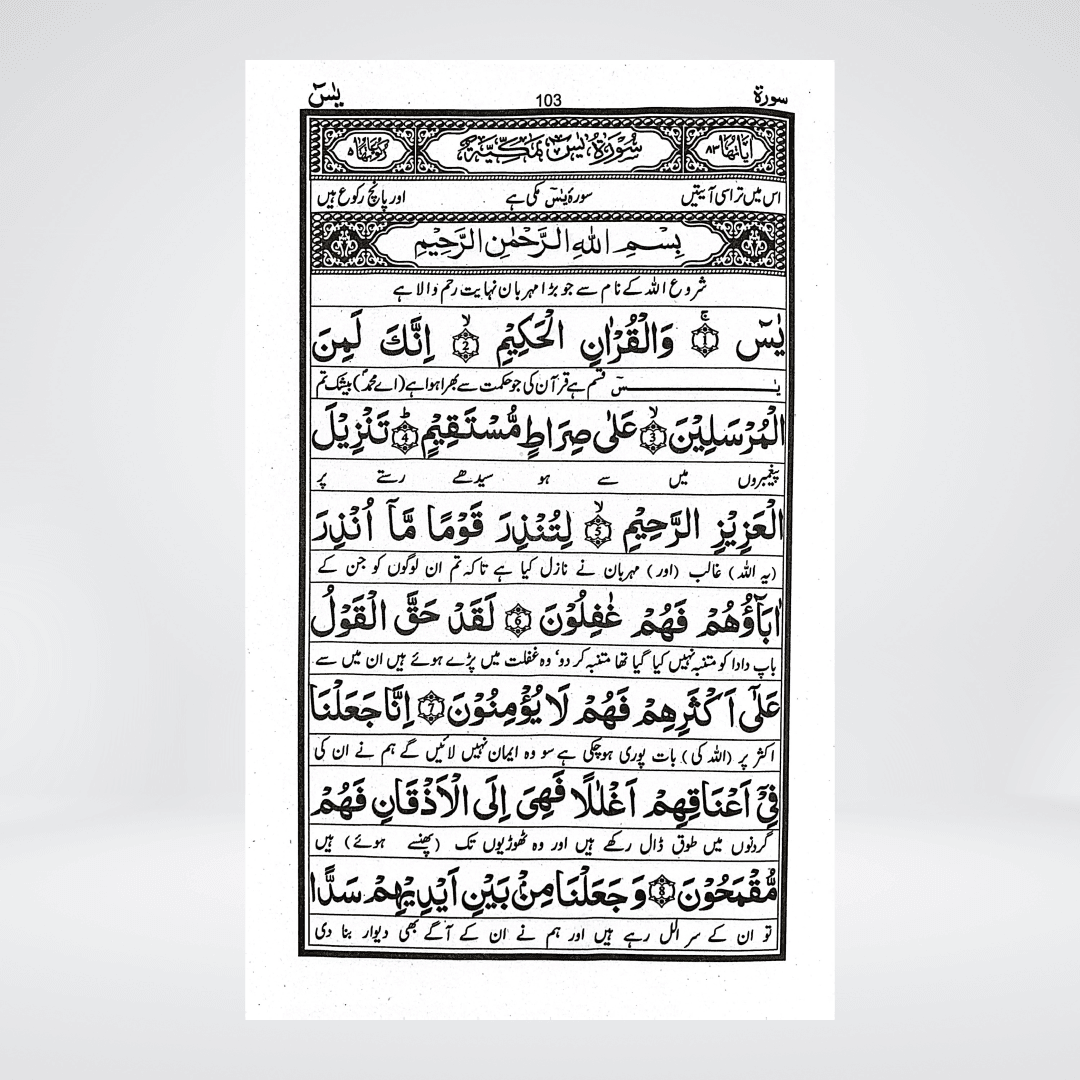 سورة 103 يٰسٓ
اٰيَاتُهَا ٨٣ سُوْرَةُ يٰسٓ مَكِّيَّةٌ رُكُوْعَاتُهَا ٥
اس میں تراسی آیتیں سورۂ یٰسٓ مکی ہے اور پانچ رکوع ہیں
بِسْمِ اللهِ الرَّحْمٰنِ الرَّحِيْمِ
شروع اللہ کے نام سے جو بڑا مہربان نہایت رحم والا ہے
يٰسٓ ۚ 1 وَالْقُرْاٰنِ الْحَكِيْمِ ۙ 2 اِنَّكَ لَمِنَ
یٰــــــسٓ قسم ہے قرآن کی جو حکمت سے بھرا ہوا ہے (اے محمدؐ) بیشک تم
الْمُرْسَلِيْنَ ۙ 3 عَلٰى صِرَاطٍ مُّسْتَقِيْمٍ ؕ 4 تَنْزِيْلَ
پیغمبروں میں سے ہو سیدھے رستے پر
الْعَزِيْزِ الرَّحِيْمِ ۙ 5 لِتُنْذِرَ قَوْمًا مَّاۤ اُنْذِرَ
(یہ اللہ) غالب (اور) مہربان نے نازل کیا ہے تاکہ تم ان لوگوں کو جن کے
اٰبَآؤُهُمْ فَهُمْ غٰفِلُوْنَ 6 لَقَدْ حَقَّ الْقَوْلُ
باپ دادا کو متنبہ نہیں کیا گیا تھا متنبہ کر دو، وہ غفلت میں پڑے ہوئے ہیں ان میں سے
عَلٰٓى اَكْثَرِهِمْ فَهُمْ لَا يُؤْمِنُوْنَ 7 اِنَّا جَعَلْنَا
اکثر پر (اللہ کی) بات پوری ہو چکی ہے سو وہ ایمان نہیں لائیں گے ہم نے ان کی
فِيْۤ اَعْنَاقِهِمْ اَغْلٰلًا فَهِيَ اِلَى الْاَذْقَانِ فَهُمْ
گردنوں میں طوق ڈال رکھے ہیں اور وہ ٹھوڑیوں تک (پھنسے ہوئے) ہیں
مُّقْمَحُوْنَ 8 وَ جَعَلْنَا مِنْۢ بَيْنِ اَيْدِيْهِمْ سَدًّا
تو ان کے سر الل رہے ہیں اور ہم نے ان کے آگے بھی دیوار بنا دی